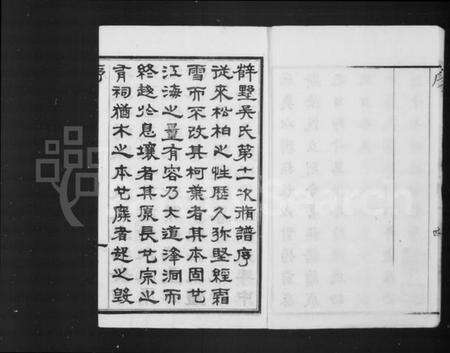 薛墅吳氏第十二次脩譜序
從來松柏之性歷久弥堅經霜
雪而不改其柯葉者其本固也
江海之量有容乃大道洚洞而
終趍於息壤者其原長也宗之
有祠猶木之本也廢者起之毀
序
序